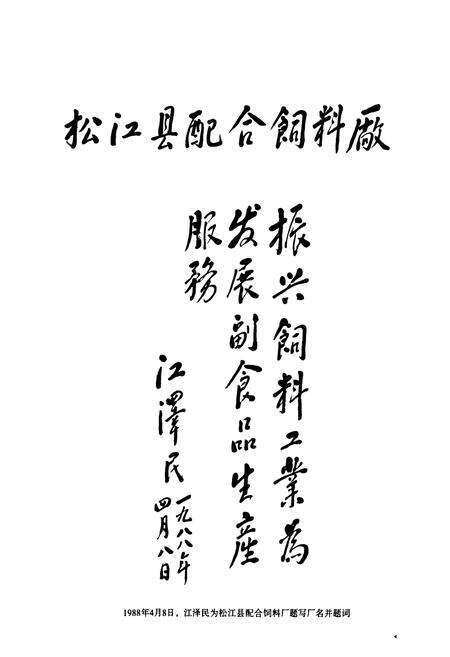 松江县配合飼料廠
振兴飼料工業為
发展副食品生産
服務
江澤民
一九八八年
四月八日
1988年4月8日，江泽民为松江县配合饲料厂题写厂名并题词